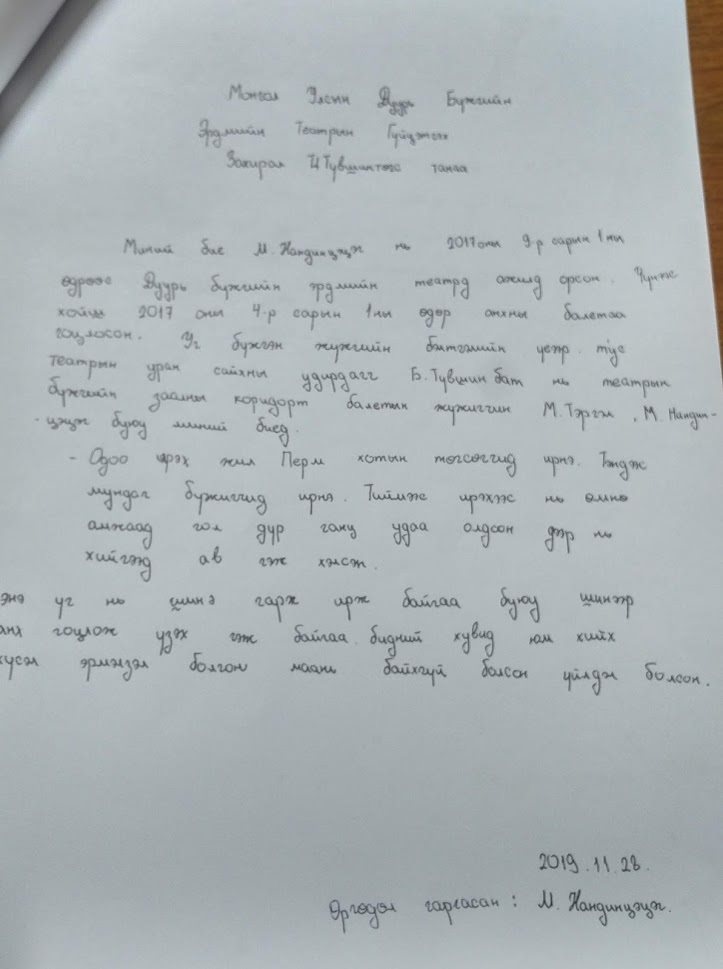 Монгол Улсын Дуурь Бүжгийн
Эрдмийн Театрын Гүйцэтгэх
Захирал Ц Түвшинтөгс танаа
Миний бие М. Нандинцэцэг нь 2017 оны 9-р сарын 1ны
өдрөөс Дуурь бүжгийн эрдмийн театрд ажилд орсон. Үүнээс
хойш 2017 оны 4-р сарын 1ны өдөр анхны балетаа
гоцлосон. Уг бүжгэн жүжгийн бэлтгэлийн үеэр тус
театрын уран сайхны удирдагч Б. Түвшинбат нь театрын
бүжгийн заалны коридорт балетын жүжигчин М. Тэргэл, М. Нандин-
- цэцэг буюу миний биед.
- Одоо ирэх жил Перм хотын төгсөгчид ирнэ. Тэндээс
мундаг бүжигчид ирнэ. Тиймээс ирэхээс нь өмнө
амжаад гол дүр ганц удаа олдсон дээр нь
хийгээд ав гэж хэлсэн.
энэ үг нь шинэ гарж ирж байгаа буюу шинээр
анх гоцлож үзэх гэж байгаа бидний хувьд юм хийх
хүсэл эрмэлзэл болгон маань байхгүй болсон үйлдэл болсон.
2019.11.28.
Өргөдөл гаргасан: М. Нандинцэцэг.